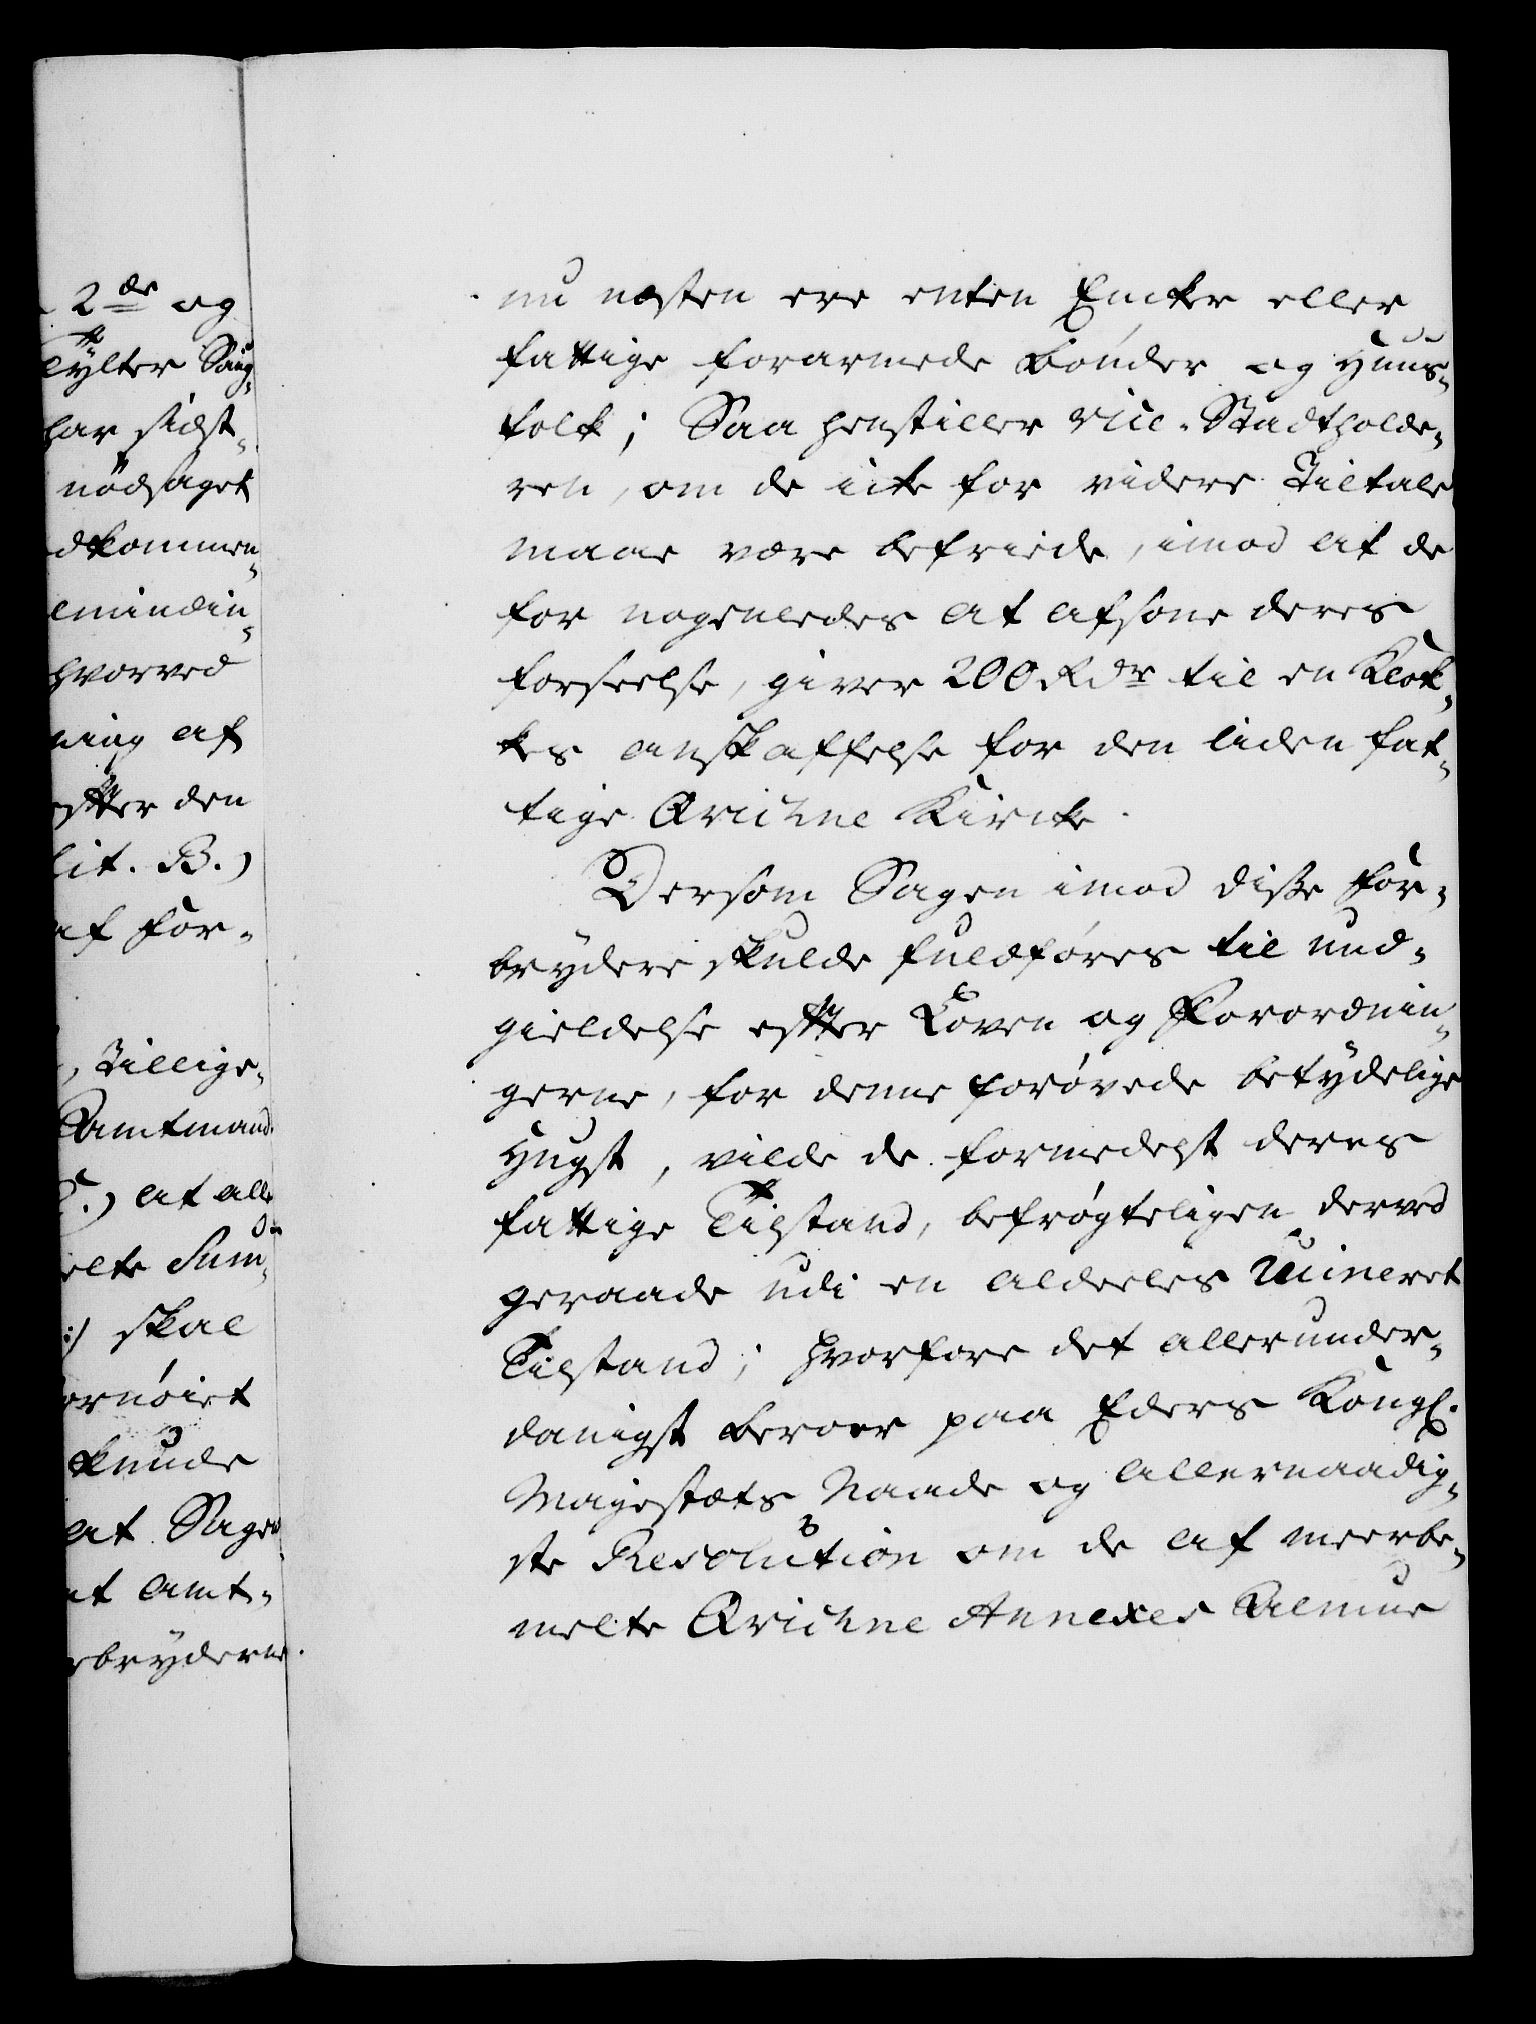 2de og
Tylter Saug-
har sidst-
nödsaget
dkommen-
lmindin-
hvorved
ning af
efter den
Lit. B.)
af For-
, Tillige-
Amtmand
C.) at alle
elte Sum-
:/ skal
ornöiet
kunde
at Sagen
nt Amt-
rbryderne.
nu næsten ere enten Encker eller
fattige forarmede Bönder og Huus-
folk; Saa henstiller Vice-Stadtholde-
ren, om de icke for videre Tiltale
maae være befriede, imod at de
for nogenledes at afsone deres
forseelse, giver 200 Rdr til en Klok-
kes anskaffelse for den liden fat-
tige Qvichne Kircke.
Dersom Sagen imod disse For-
brydere skulde fuldföres til und-
gieldelse efter Loven og Forordnin-
gerne, for denne forövede betydelige
Hugst, vilde de formedelst deres
fattige Tilstand, befrögteligen derved
geraade udi en aldeeles Ruineret
Tilstand; hvorfore det allerunder-
danigst beroer paa Eders Kongl.
Majestæts Naade og Allernaadig-
ste Resolution om de af meerbe-
melte Qvichne Annexes Almue